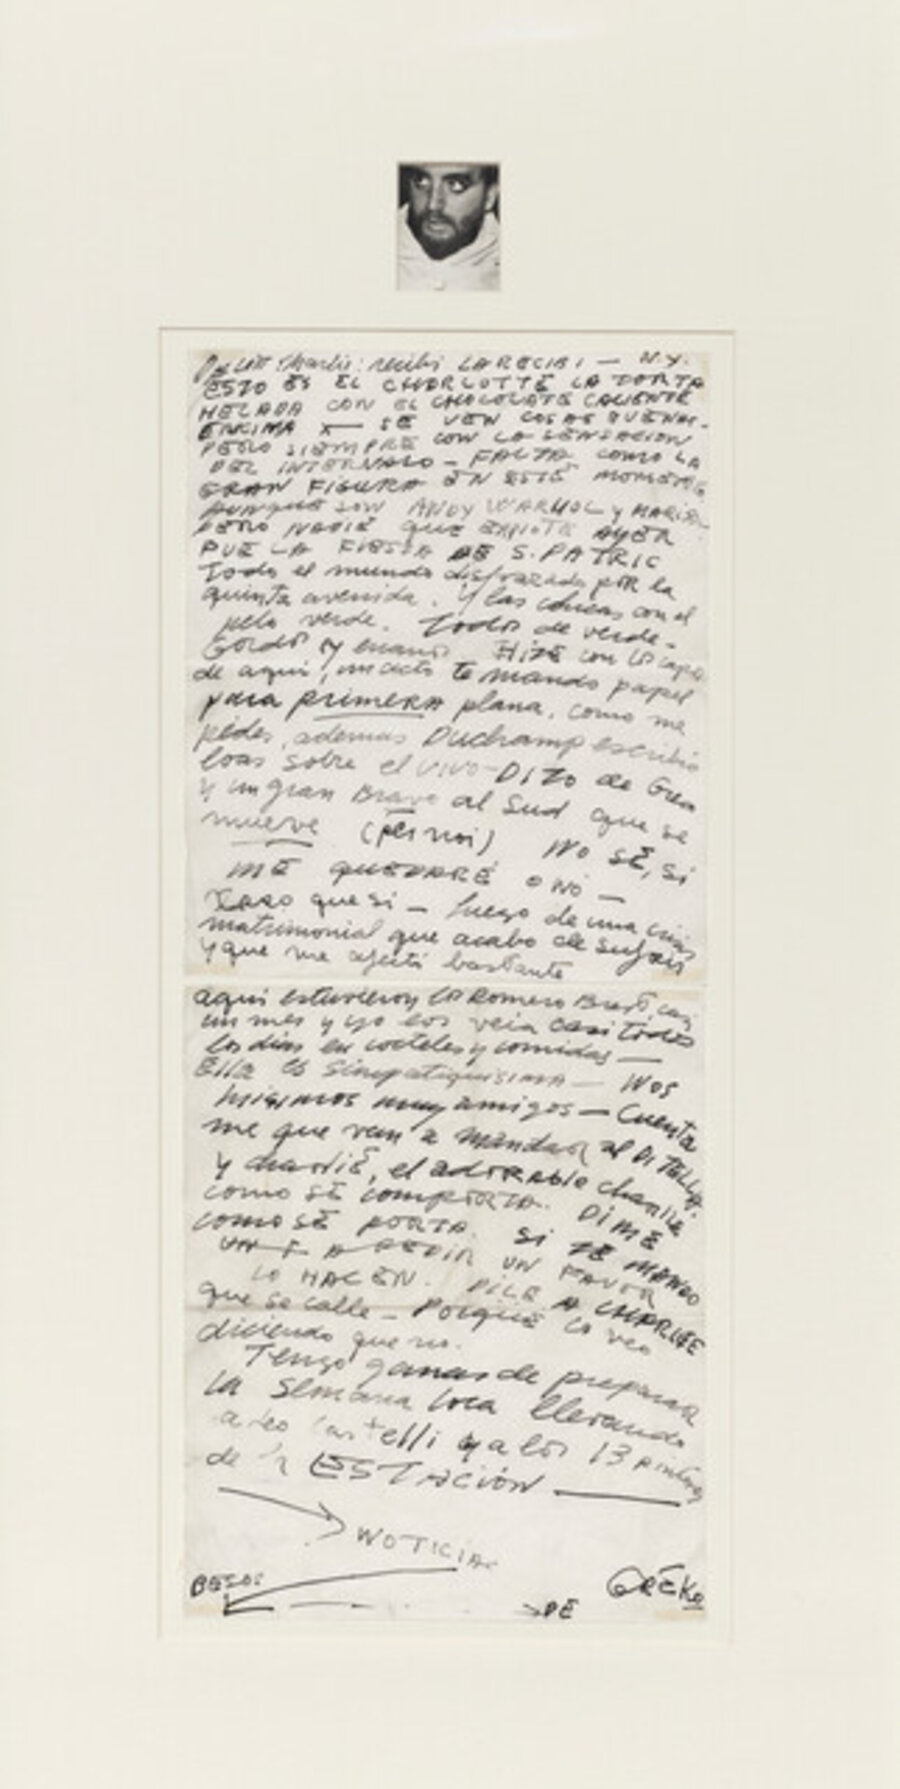 Charlie: recibi LA RECIBI — N.Y.
ESTO ES EL CHARLOTTE LA TORTA
HELADA CON EL CHOCOLATE CALIENTE
ENCIMA — SE VEN COSAS BUENAS-
PERO SIEMPRE CON LA SENSACION
DEL INTERVALO - FALTA COMO LA
GRAN FIGURA EN ESTE
AUNQUE SON ANDY WARHOL y
PERO NADIE QUE AYER
FUE LA FIESTA DE S. PATRIC
Todo el mundo disfrazado por la
quinta avenida. Y las chicas con el
pelo verde. Todos de verde-
Gordos y enanos. HIZE con
de aqui, un acto te mando papel
para primera plana, como me
pides, ademas Duchamp escribió
loas sobre el VIVO-DITO de Gre
y un gran Bravo al Sud que se
mueve NO SÉ, SI
ME QUEDARÉ O NO —
que si — luego de una crisis
matrimonial que acabo de sufrir
y que me afectó bastante
aqui estuvieron los Romero Brest, casi
un mes y yo los veia casi todos
los dias en cocteles y comidas —
Ella es simpatiquisima — NOS
hicimos muy amigos — Cuenta
me que van a mandar al DI TELLA.
y charlie, el adorable charlie
como se comporta. DIME
COMO SE PORTA. SI TE MANDO
A PEDIR UN FAVOR
LO HACEN. DILE A CHARLIE
que se calle — Porque lo veo
diciendo que no.
Tengo ganas de preparar
la Semana loca llevando
a Leo Castelli y a los 13 pintores
de la ESTACIÓN
NOTICIAS
BESOS
DE GRECO